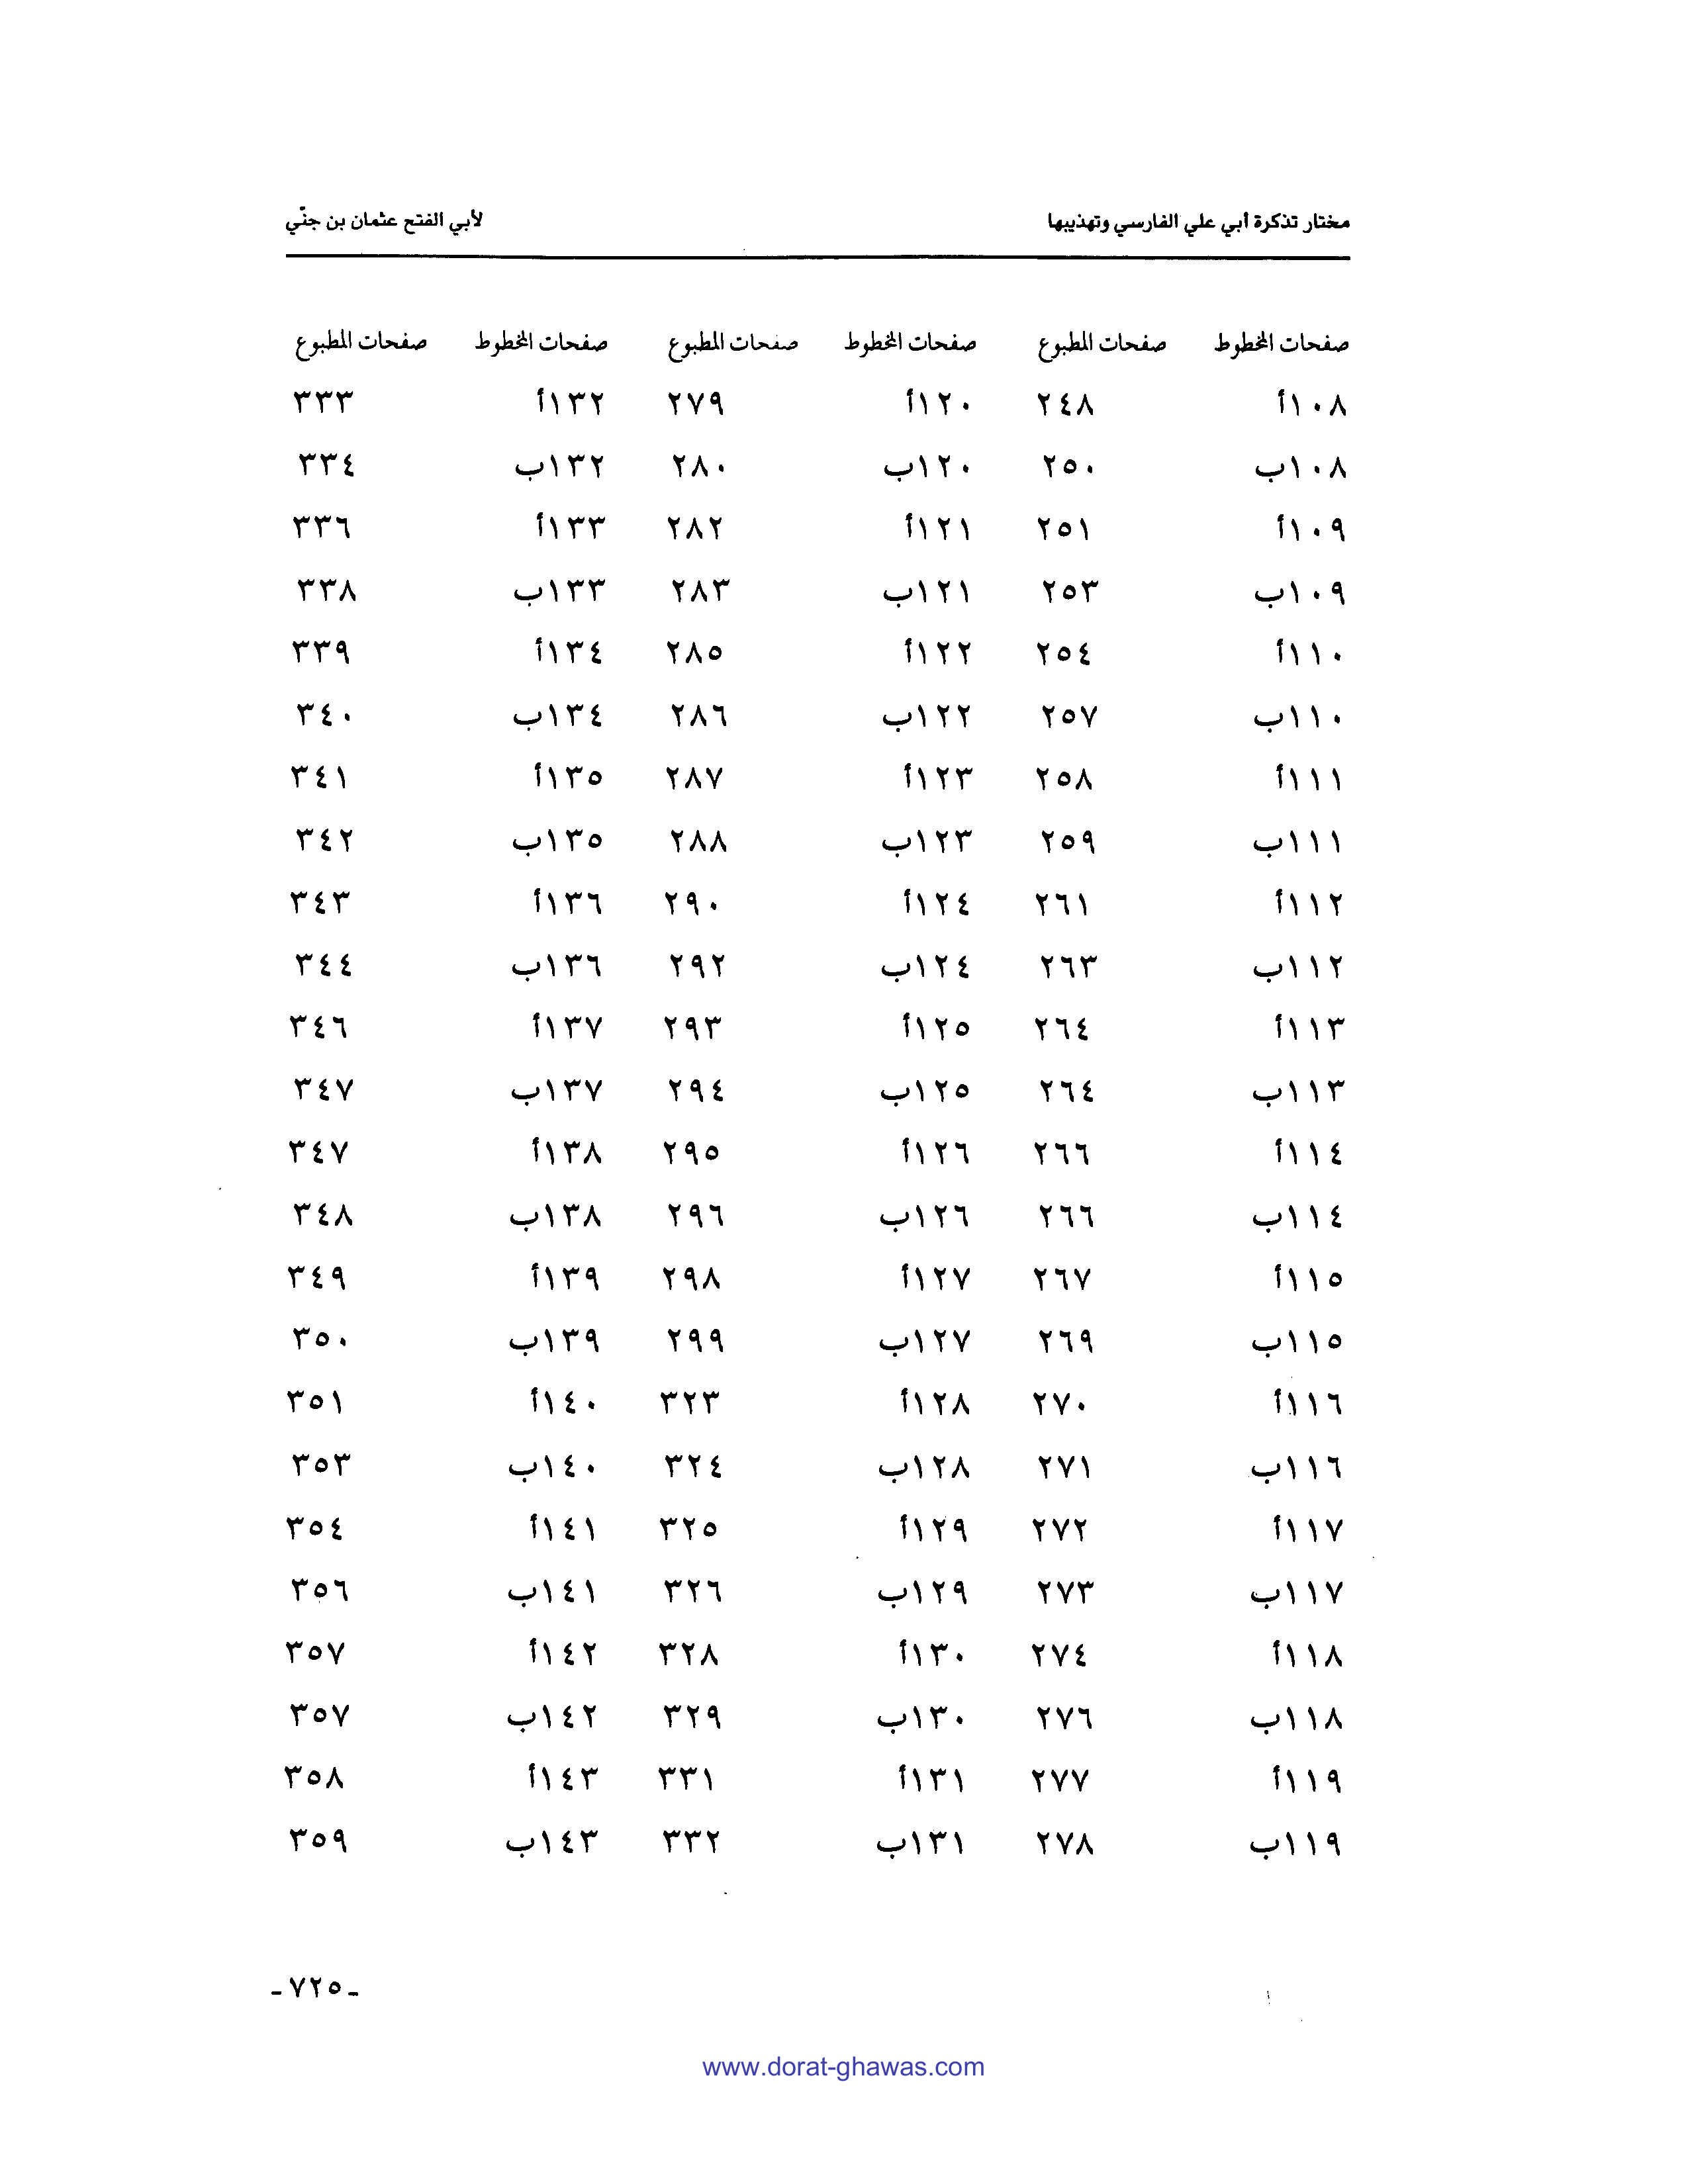 مختار تذكرة أبي علي الفارسي وتهذيبها لأبي الفتح عثمان بن جنّي
صفحات المخطوط صفحات المطبوع صفحات المخطوط صفحات المطبوع صفحات المخطوط صفحات المطبوع
١٠٨أ ٢٤٨ ١٢٠أ ٢٧٩ ١٣٢أ ٣٣٣
١٠٨ب ٢٥٠ ١٢٠ب ٢٨٠ ١٣٢ب ٣٣٤
١٠٩أ ٢٥١ ١٢١أ ٢٨٢ ١٣٣أ ٣٣٦
١٠٩ب ٢٥٣ ١٢١ب ٢٨٣ ١٣٣ب ٣٣٨
١١٠أ ٢٥٤ ١٢٢أ ٢٨٥ ١٣٤أ ٣٣٩
١١٠ب ٢٥٧ ١٢٢ب ٢٨٦ ١٣٤ب ٣٤٠
١١١أ ٢٥٨ ١٢٣أ ٢٨٧ ١٣٥أ ٣٤١
١١١ب ٢٥٩ ١٢٣ب ٢٨٨ ١٣٥ب ٣٤٢
١١٢أ ٢٦١ ١٢٤أ ٢٩٠ ١٣٦أ ٣٤٣
١١٢ب ٢٦٣ ١٢٤ب ٢٩٢ ١٣٦ب ٣٤٤
١١٣أ ٢٦٤ ١٢٥أ ٢٩٣ ١٣٧أ ٣٤٦
١١٣ب ٢٦٤ ١٢٥ب ٢٩٤ ١٣٧ب ٣٤٧
١١٤أ ٢٦٦ ١٢٦أ ٢٩٥ ١٣٨أ ٣٤٧
١١٤ب ٢٦٦ ١٢٦ب ٢٩٦ ١٣٨ب ٣٤٨
١١٥أ ٢٦٧ ١٢٧أ ٢٩٨ ١٣٩أ ٣٤٩
١١٥ب ٢٦٩ ١٢٧ب ٢٩٩ ١٣٩ب ٣٥٠
١١٦أ ٢٧٠ ١٢٨أ ٣٢٣ ١٤٠أ ٣٥١
١١٦ب ٢٧١ ١٢٨ب ٣٢٤ ١٤٠ب ٣٥٣
١١٧أ ٢٧٢ ١٢٩أ ٣٢٥ ١٤١أ ٣٥٤
١١٧ب ٢٧٣ ١٢٩ب ٣٢٦ ١٤١ب ٣٥٦
١١٨أ ٢٧٤ ١٣٠أ ٣٢٨ ١٤٢أ ٣٥٧
١١٨ب ٢٧٦ ١٣٠ب ٣٢٩ ١٤٢ب ٣٥٧
١١٩أ ٢٧٧ ١٣١أ ٣٣١ ١٤٣أ ٣٥٨
١١٩ب ٢٧٨ ١٣١ب ٣٣٢ ١٤٣ب ٣٥٩
-٧٢٥-
www.dorat-ghawas.com